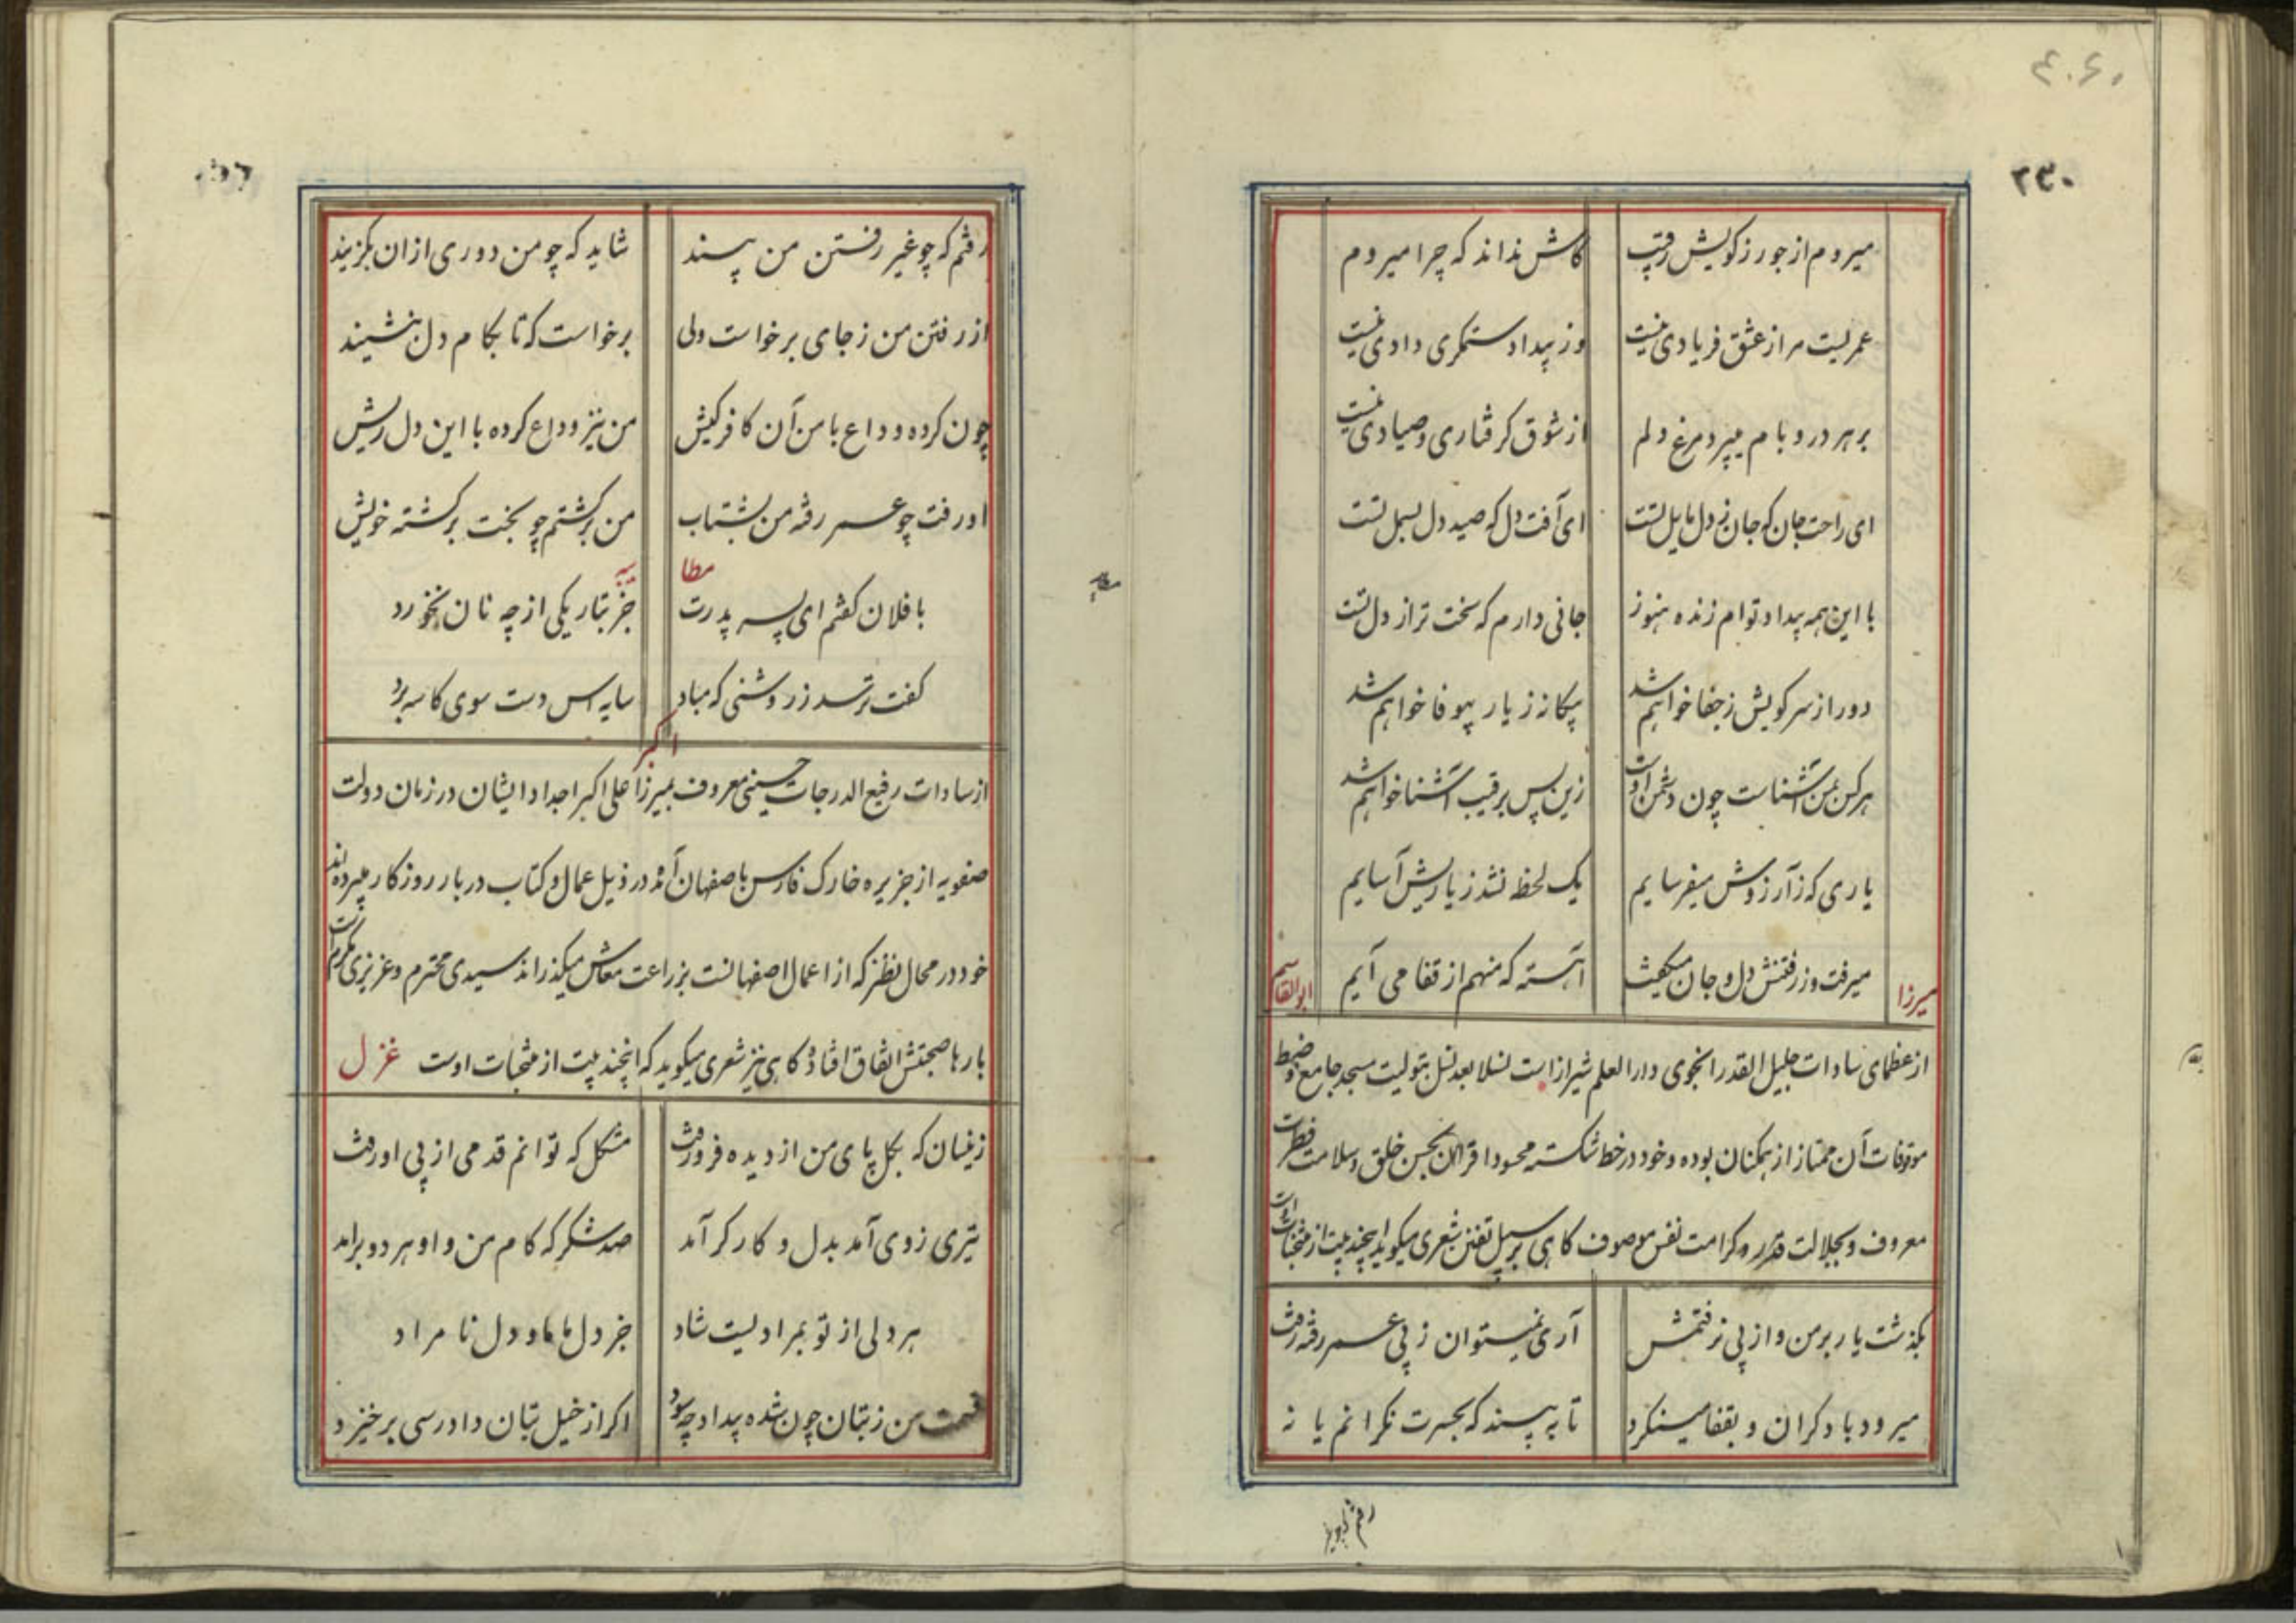 ۲۳۰
میروم از جور ز کویش رقیب کاش نداند که چرا میروم
عمریست مرا ز عشق فریادی نیست وز بیداد ستمکری دادی نیست
بر هر در و بام میپرد مرغ دلم از شوق کرفتاری و صیادی نیست
ای راحت جان که جان ز دل مایل تست ای آفت دل که صید دل بسمل تست
با این همه بیداد تو ام زنده هنوز جانی دارم که سخت تر از دل تست
دور از سر کویش ز جفا خواهم شد بیکانه ز یار بیوفا خواهم شد
هر کس بمن آشناست چون دشمن اوست زین پس برقیب آشنا خواهم شد
یاری که ز آرزوش میفرسایم یک لحظه نشد ز یاریش آسایم
میرفت و ز رفتنش دل و جان میکفت آهسته که منهم از قفا می آیم
میرزا ابوالقاسم
از عظمای سادات جلیل القدر انجوی دارالعلم شیراز است نسلا بعد نسل بتولیت مسجد جامع و ضبط
موقوفات آن ممتاز از همکنان بوده و خود در خط شکسته محسود اقران بحسن خلق و سلامت فطرت
معروف و بجلالت قدر و کرامت نفس موصوف کاهی بر سبیل تفنن شعری میکوید اینچند بیت از منتخبات اوست
بکذشت یار بر من و از پی نرفتمش آری نمیتوان ز پی عمر رفته رفت
میرود با دکران و بقفا مینکرد تا به بیند که بحسرت نکرانم یا نه
رفتم که چو غیر رفتن من بیند شاید که چو من دوری از آن بکزیند
از رفتن من ز جای برخواست ولی برخواست که تا بکام دل بنشیند
چون کرده وداع با من آن کافر کیش من نیز وداع کرده با این دل ریش
او رفت چو عمر رفته من بشتاب من برکشتم چو بخت برکشته خویش
مطایبه
با فلان کفتم ای پسر پدرت جز بتاریکی از چه نان نخورد
کفت ترسد ز روشنی که مباد سایه اس دست سوی کاسه برد
اکبر
از سادات رفیع الدرجات حسینی معروف بمیرزا علی اکبر اجداد ایشان در زمان دولت
صفویه از جزیره خارک فارس باصفهان آمده در ذیل عمال و کتاب دربار روزکار میبرده اند
خود در محال نطنز که از اعمال اصفهانست بزراعت معاش میکذراند سیدی محترم و عزیزی مکرم است
بارها صحبتش اتفاق افتاده کاهی نیز شعری میکوید که اینچند بیت از منتخبات اوست غزل
زینسان که بکل پای من از دیده فرو رفت مشکل که توانم قدمی از پی او رفت
تیری ز وی آمد بدل و کارکر آمد صد شکر که کام من و او هر دو برآمد
هر دلی از تو بمرادیست شاد جز دل ما و دل نا مراد
قسمت من ز بتان چون شده بیداد چه سود اکر از خیل بتان دادرسی برخیزد